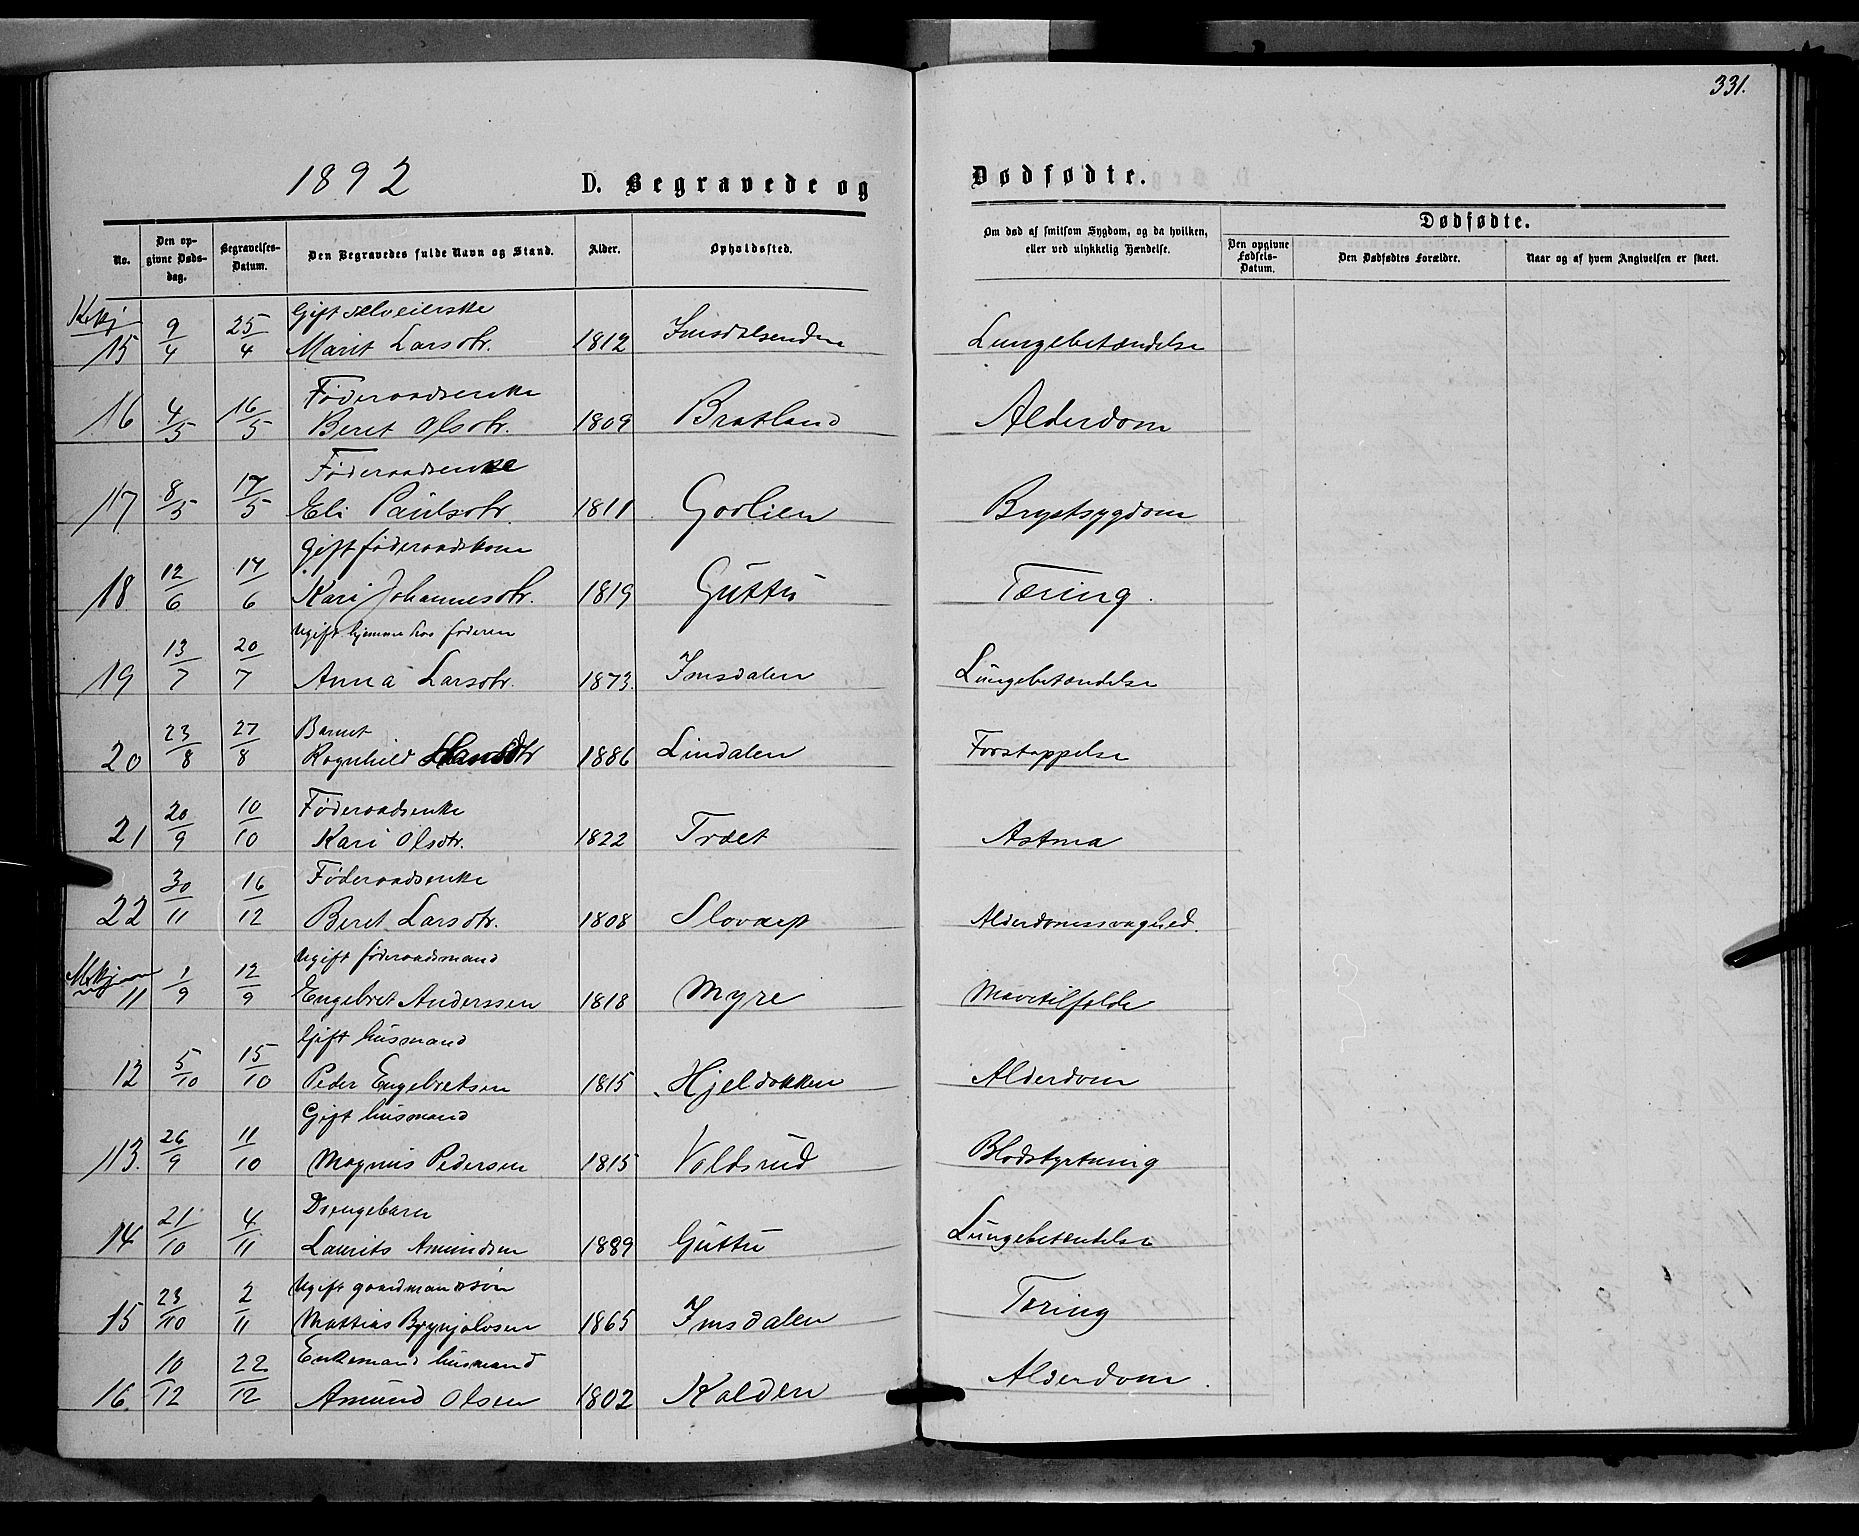 331.
1892 D. Begravede og Dødfødte.
No. Den opgivne Dødsdag. Begravelses-Datum. Den Begravedes fulde Navn og Stand. Alder. Opholdssted. Om død af smitsom Sygdom, og da hvilken, eller ved ulykkelig Hændelse. Dødfødte.
Den opgivne Fødsels-Datum. Den Dødfødtes Forældre. Naar og af hvem Angivelsen er skeet.
Gift selveierske
15 9/4 25/4 Marit Larsdtr. 1812 Imsdalsenden Lungebetændelse
Føderaadsenke
16 4/5 16/5 Beret Olsdtr. 1809 Bratland Alderdom
Føderaadsenke
17 8/5 17/5 Eli Paulsdtr. 1811 Gorlien Brystsygdom
Gift føderaadskone
18 12/6 17/6 Kari Johannesdtr. 1819 Guttu Tæring.
Ugift hjemme hos faderen
19 13/7 20/7 Anna Larsdtr. 1873. Imsdalen Lungebetændelse
Barnet
20 23/8 27/8 Ragnhild Hansdtr 1886 Lindalen Forstoppelse
Føderaadsenke
21 20/9 10/10 Kari Olsdtr. 1822 Træet Astma
Føderaadsenke
22 30/11 16/12 Beret Larsdtr. 1808 Alderdomssvaghed.
Ugift føderaadsmand
11 1/9 12/9 Engebret Anderssen 1818 Myre Mavetilfælde
Gift husmand
12 5/10 15/10 Peder Engebretsen 1815 Hjeldokken Alderdom
Gift husmand
13. 26/9 11/10 Magnus Pedersen 1815 Voldsrud Blodstyrtning
Drengebarn
14 21/10 4/11 Laurits Amundsen 1889 Guttu Lungebetændelse
Ugift gaardmandssøn
15 23/10 2/11 Mattias Brynjolvsen 1865 Imsdalen Tæring
Enkemand husmand
16. 10/12 22/12 Amund Olsen 1802 Kolden Alderdom.